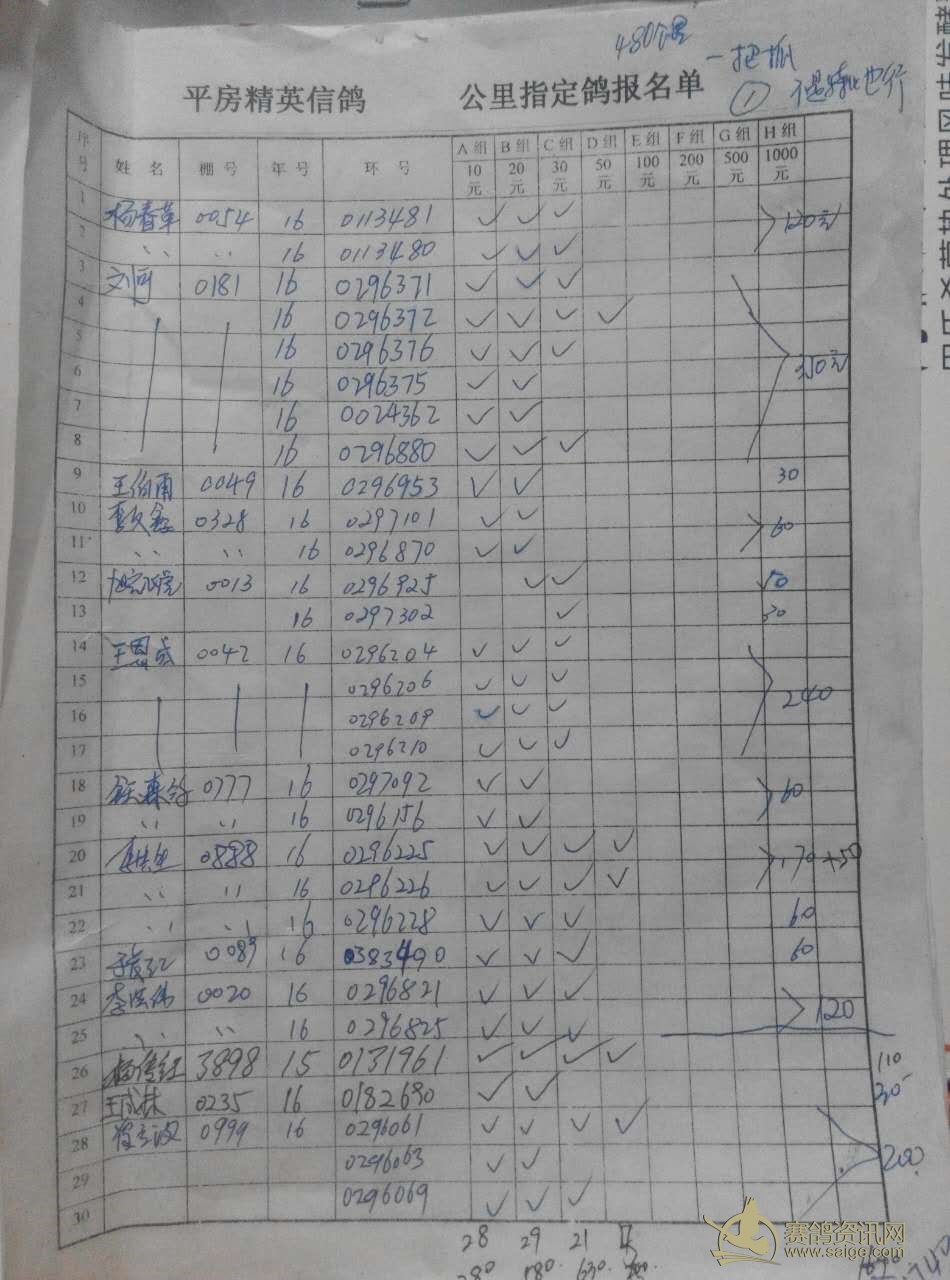 480公里
一把抓
① 不是特比也行
平房精英信鸽 公里指定鸽报名单
序号 姓 名 棚 号 年 号 环 号 A 组 10 元 B 组 20 元 C 组 30 元 D 组 50 元 E 组 100 元 F 组 200 元 G 组 500 元 H 组 1000 元
1 杨春草 0054 16 0113481 ✓ ✓ ✓ 120元
2 〃 〃 16 0113480 ✓ ✓ ✓
3 刘河 0181 16 0296371 ✓ ✓ ✓
4 16 0296372 ✓ ✓ ✓ ✓
5 16 0296376 ✓ ✓ ✓ 350元
6 16 0296375 ✓ ✓
7 16 0024362 ✓ ✓
8 16 0296880 ✓ ✓ ✓
9 王伯雨 0049 16 0296953 ✓ ✓ 30
10 0328 16 0297101 ✓ ✓ 60
11 〃 〃 16 0296870 ✓ ✓
12 0013 16 0296925 ✓ ✓ 50
13 16 0297302 ✓ 30
14 王恩成 0042 16 0296204 ✓ ✓ ✓
15 0296206 ✓ ✓ ✓ 240
16 0296209 ✓ ✓ ✓
17 0296210 ✓ ✓ ✓
18 0777 16 0297092 ✓ ✓ 60
19 〃 〃 16 0296156 ✓ ✓
20 0888 16 0296225 ✓ ✓ ✓ ✓ 170 +50
21 〃 〃 16 0296226 ✓ ✓ ✓ ✓
22 〃 〃 16 0296228 ✓ ✓ ✓ 60
23 0089 16 0383490 ✓ ✓ ✓ 60
24 李洪伟 0020 16 0296821 ✓ ✓ ✓ 120
25 〃 〃 16 0296825 ✓ ✓ ✓
26 杨传红 3898 15 0131961 ✓ ✓ ✓ ✓ 110
27 王成林 0235 16 0182690 ✓ ✓ 30
28 0999 16 0296061 ✓ ✓ ✓ ✓
29 0296063 ✓ ✓ 200
30 0296069 ✓ ✓ ✓
28 29 21
280 580 630
赛鸽资讯网
www.saige.com